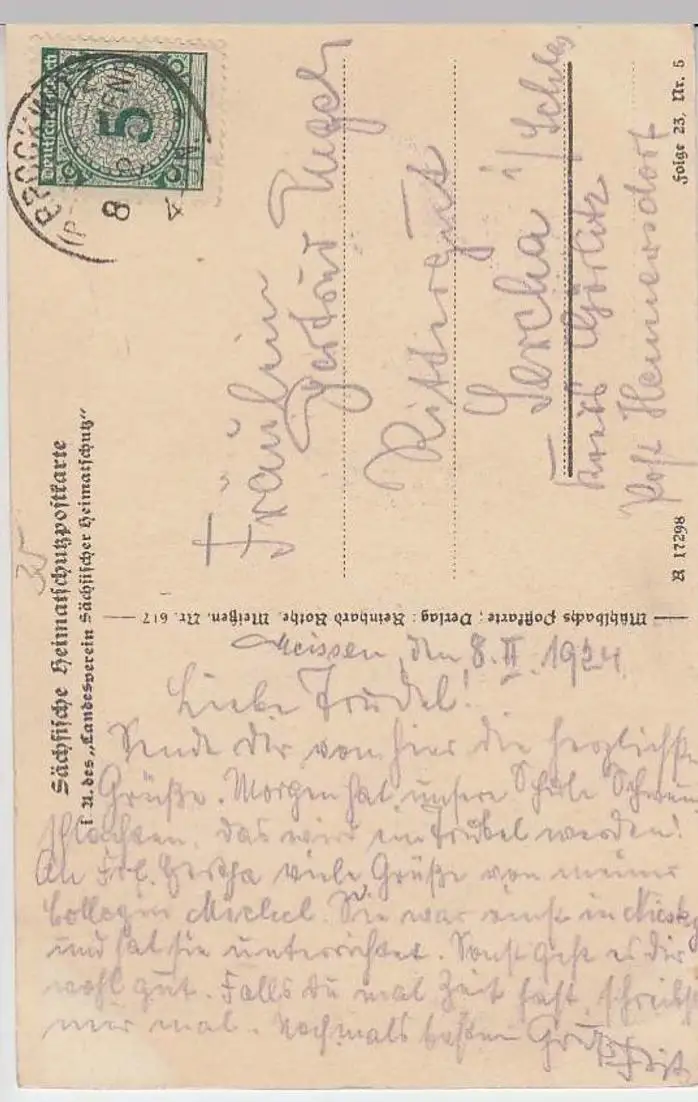 Sächsische Heimatschutzpostkarte
i. A. des „Landesverein Sächsischer Heimatschutz“
35
Deutsches Reich
5
BROCKWITZ
8
Fräulein
Rittergut
Sercha i/Schles
Kreis Görlitz
Post Hennersdorf
Folge 23, Nr. 5
R 17298
Mühlbachs Postkarte; Verlag: Reinhard Rothe, Meißen, Nr. 617
Meissen, den 8.II.1924
Liebe Trudel!
Sende dir von hier die herzlichste
Grüße. Morgen hat unsere Schule Schwein
schlachten, das wird ein Trubel werden!
An Frl. Hertha viele Grüße von meiner
Collegin Michel. Sie war einst in Niesky
und hat sie unterrichtet. Sonst geht es dir
wohl gut. Falls du mal Zeit hast, schreibst
mir mal. Nochmals besten Gruß